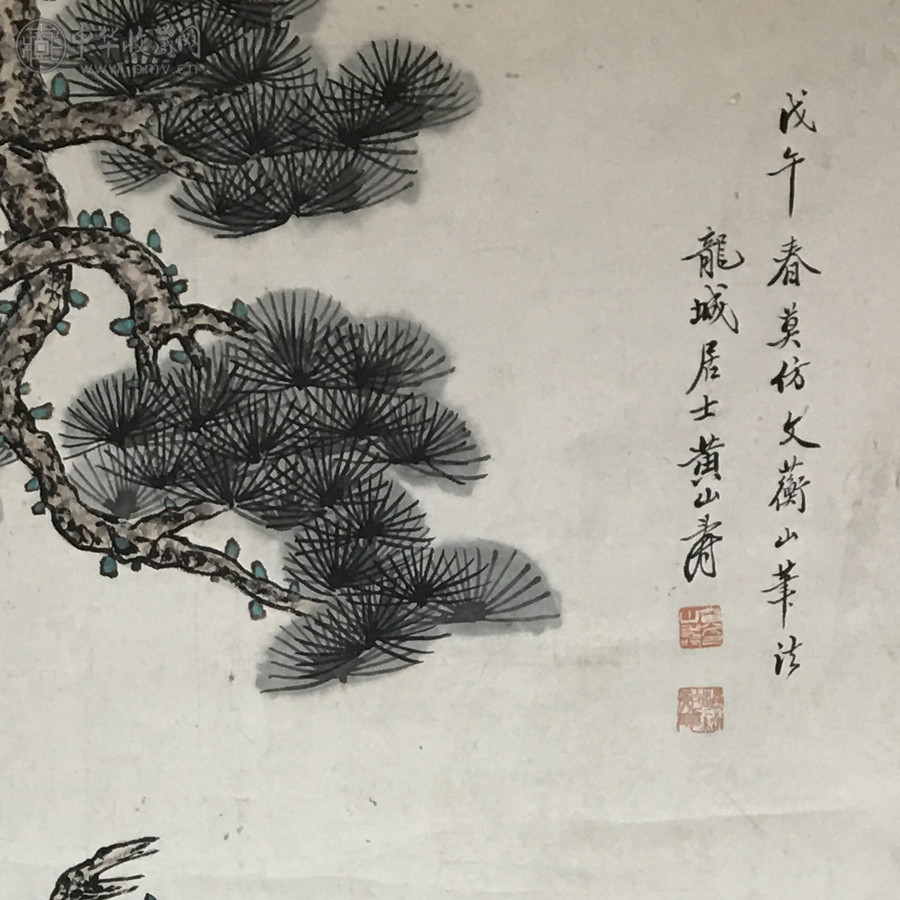 中华收藏网
www.pmv.cn
戊午春莫仿文蘅山筆法
龍城居士黄山壽